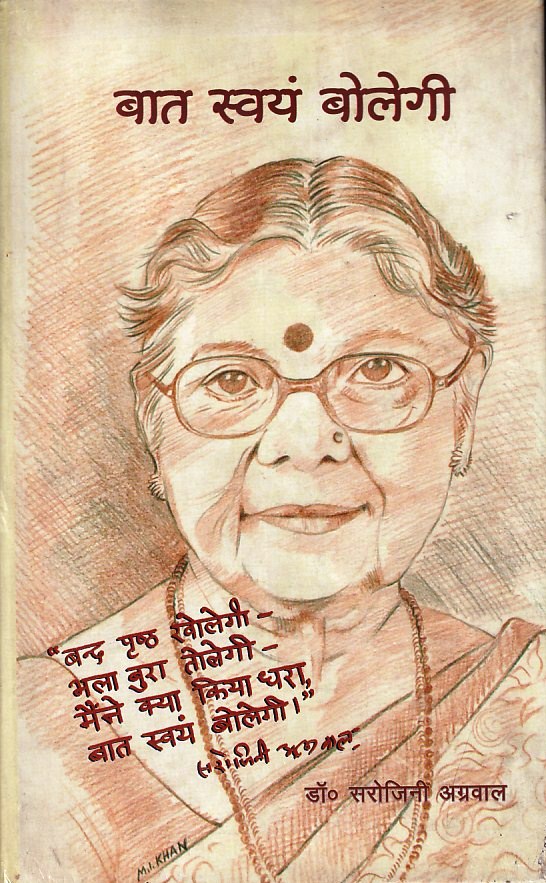 बात स्वयं बोलेगी
“बन्द पृष्ठ खोलेगी –
भला बुरा तोलेगी –
मैंने क्या किया धरा,
बात स्वयं बोलेगी।”
सरोजिनी अग्रवाल
डॉ० सरोजिनी अग्रवाल
M.I.KHAN